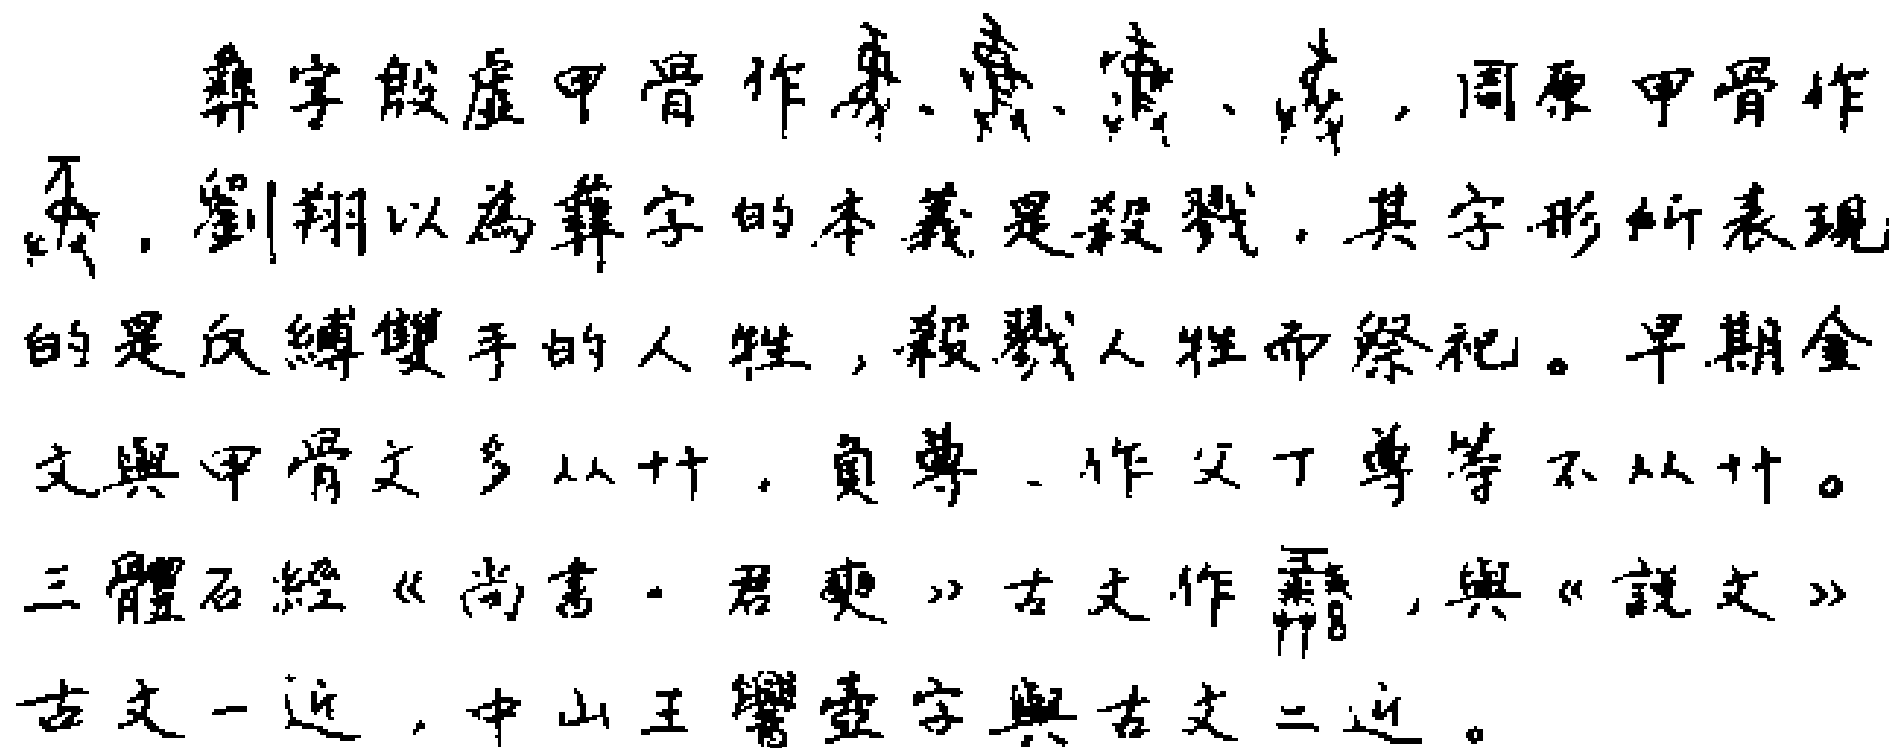 彝字殷虛甲骨作、、、，周原甲骨作
，劉翔以為彝字的本義是殺戮，其字形所表現
的是反縛雙手的人牲，殺戮人牲而祭祀。早期金
文與甲骨文多从廾，員尊、作父丁尊等不从廾。
三體石經《尚書·君奭》古文作，與《說文》
古文一近，中山王壺字與古文二近。